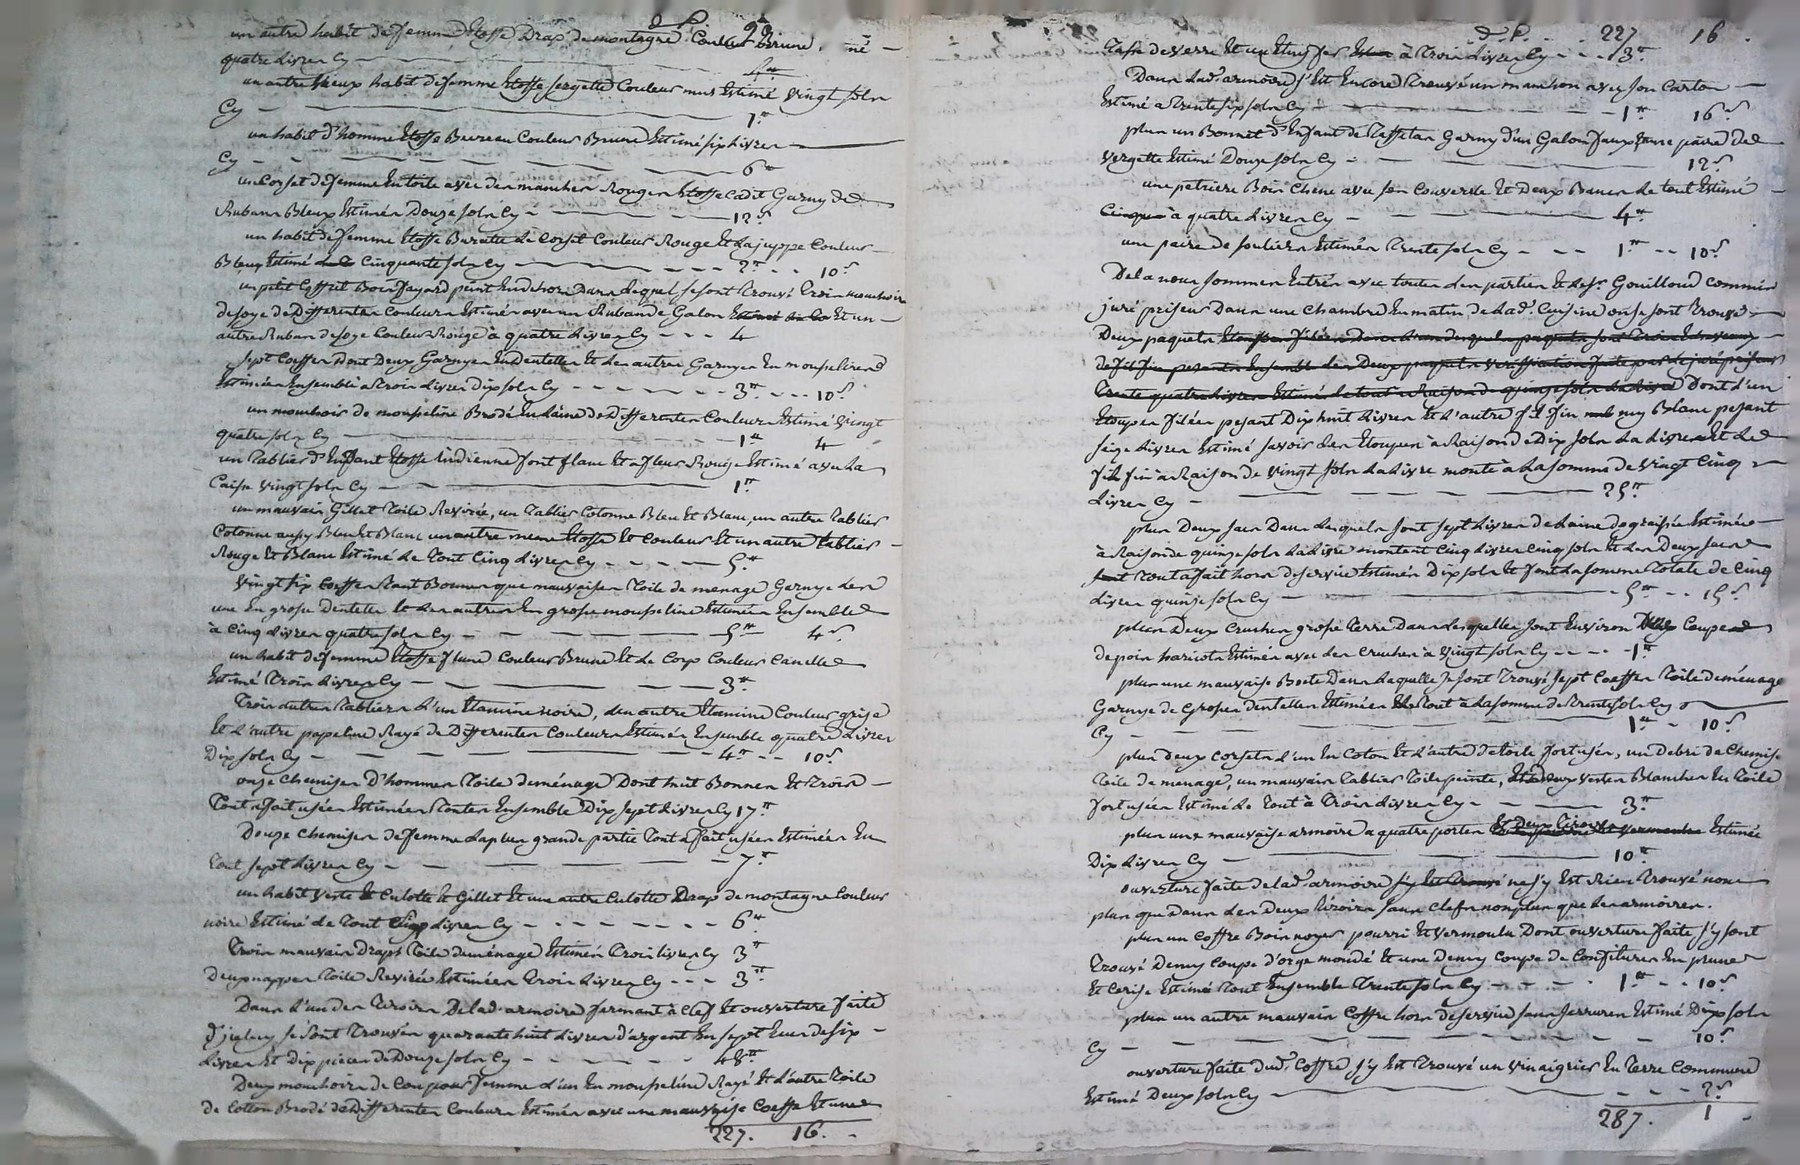 d. P. 99
un autre habit de femme Etoffe Drap de montagne Couleur Brune,
quatre Livres Cy 4 tt
un autre vieux habit de femme Etoffe sergette Couleur mus Estimé vingt sols
Cy 1 tt
un habit d'homme Etoffe Bureau Couleur Brune Estimé six Livres
Cy 6 tt
un Corset de femme En toile avec des manches Rouges Etoffe Cadit Garny de
Rubans Bleux Estimés Douze sols Cy 12 s
un habit de femme Etoffe Buratte Le Corset Couleur Rouge Et La juppe Couleur
Bleux Estimé Cinquante sols Cy 2 tt 10 s
un petit Coffret Bois fayard peint En dehors Dans Lequel se sont Trouvé Trois mouchoirs
de soye de Differentes Couleurs Estimés avec un Ruban de Galon Et un
autre Ruban de soye Couleur Rouge à quatre Livres Cy 4
sept Coeffes Dont Deux Garnyes En Dentelles Et Les autres Garnyes En mousseline
Estimées Ensemble à Trois Livres Dix sols Cy 3 tt 10 s
un mouchois de mousseline Brodé En Laine de Differentes Couleurs Estimé vingt
quatre sols Cy 1 tt 4
un Tablier D'Enfant Etoffe Indienne font flanc Et à fleurs Rouge Estimé avec La
Caisse vingt sols Cy 1 tt
un mauvais Gillet Toile Revirée, un Tablier Cotonne Bleu Et Blanc, un autre Tablier
Cotonne aussy Bleu Et Blanc un autre meme Etoffe Et Couleur Et un autre Tablier
Rouge Et Blanc Estimé Le Tout Cinq Livres Cy 5 tt
vingt six Coeffes Tant Bonnes que mauvaises Toile de menage Garnye Les
une En grosse Dentelle Et Les autres En grosse mousseline Estimées Ensemble
à Cinq Livres quatre sols Cy 5 tt 4 s
un habit de femme Etoffe Couleur Brune Et Le Corp Couleur Canelle
Estimé Trois Livres Cy 3 tt
Trois autres Tabliers L'un Etamine noire, Les autre Etamine Couleur grise
Et L'autre papeline Rayé de Differentes Couleurs Estimés Ensemble quatre Livres
Dix sols Cy 4 tt 10 s
onze Chemises D'hommes Toile de ménage Dont huit Bonnes Et Trois
Tout à fait usées Estimées Toutes Ensemble Dix sept Livres Cy 17 tt
Douze Chemises de femme La plus grande partie Tout à fait usées Estimées En
Tout sept Livres Cy 7 tt
un habit veste Et Culotte Et Gillet Et une autre Culotte Drap de montagne Couleur
noire Estimé Le Tout Livres Cy 6 tt
Trois mauvais Draps Toile de ménage Estimés Trois livres Cy 3 tt
Deux nappes Toile Revirée Estimées Trois Livres Cy 3 tt
Dans L'un des Tiroirs De lad. armoire fermant à Clef Et ouverture faite
D'iceluy se sont Trouvés quarante huit Livres d'argent En sept Ecus de six
Livres Et Dix pièces de Douze sols Cy 48 tt
Deux mouchoirs de Cou pour femme L'un En mousseline Rayé Et L'autre Toile
de Cotton Brodé de Differentes Couleurs Estimés avec une mauvaise Coeffe Et une
227. 16.
d. P. 227 16
Tasse de verre Et un à Trois Livres Cy 3 tt
Dans Lad. armoire s'Est Encore Trouvé un manchon avec son Carton
Estimé a Trente six sols Cy 1 tt 16 s
plus un Bonnet D'Enfant de Taffetas Garny d'un Galon faux Et une paire de
vergette Estimé Douze sols Cy 12 s
une petriere Bois Chene avec son Couvercle Et Deux Bancs Le tout Estimé
à quatre Livres Cy 4 tt
une paire de souliers Estimés Trente sols Cy 1 tt 10 s
De la nous sommes Entrés avec toutes Les parties Et Le Sr. Gouilloud Commis
juré priseur Dans une Chambre Enmatin de Lad. Cuisine ou se sont Trouvé
Deux paquets
Dont L'un
Etoupes filées pesant Dix huit Livres Et L'autre fil fin my Blanc pesant
seize Livres Estimé savoir Les Etoupes à Raison de Dix sols La Livre Et Le
fil fin à Raison de vingt sols La Livre monte à La somme de vingt Cinq
Livres Cy 25 tt
plus Deux sacs Dans Lesquels sont sept Livres de Laine degraissée Estimée
à Raison de quinze sols La Livre montent Cinq Livres Cinq sols Et Les Deux sacs
Tout à fait hors de service Estimés Dix sols Et font La somme Totale de Cinq
Livres quinze sols Cy 5 tt 15 s
plus Deux Cruches grosse Terre Dans Lesquelles sont Environ Coupe
de pois haricots Estimés avec Les Cruches à vingt sols Cy 1 tt
plus une mauvaise Boete Dans Laquelle se sont Trouvé sept Coeffes Toile de ménage
Garnye de Grosses Dentelles Estimées Le Tout à La somme de Trente sols Cy
Cy 1 tt 10 s
plus Deux Corsets L'un En Coton Et L'autre de toile fort usés, un Debri de Chemise
Toile de menage, un mauvais Tablier Toile peinte, Et Deux vestes Blanches En Toile
fort usées Estimé Le Tout à Trois Livres Cy 3 tt
plus une mauvaise armoire a quatre portes Et Deux Tiroirs Estimée
Dix Livres Cy 10 tt
ouverture faite de lad. armoire ne s'y Est Rien Trouvé non
plus que Dans Les Deux Tiroirs sans Clefs non plus que Les armoires.
plus un Coffre Bois noyer pourri Et vermoulu Dont ouverture faite s'y sont
Trouvé Demy Coupe d'orge mondé Et une Demy Coupe de Confitures En prune
Et Cerise Estimé Tout Ensemble Trente sols Cy 1 tt 10 s
plus un autre mauvais Coffre hors de service sans serrures Estimé Dix sols
Cy 10 s
ouverture faite dud. Coffre s'y Est Trouvé un vinaigrier En Terre Commune
Estimé Deux sols Cy 2 s
287. 1